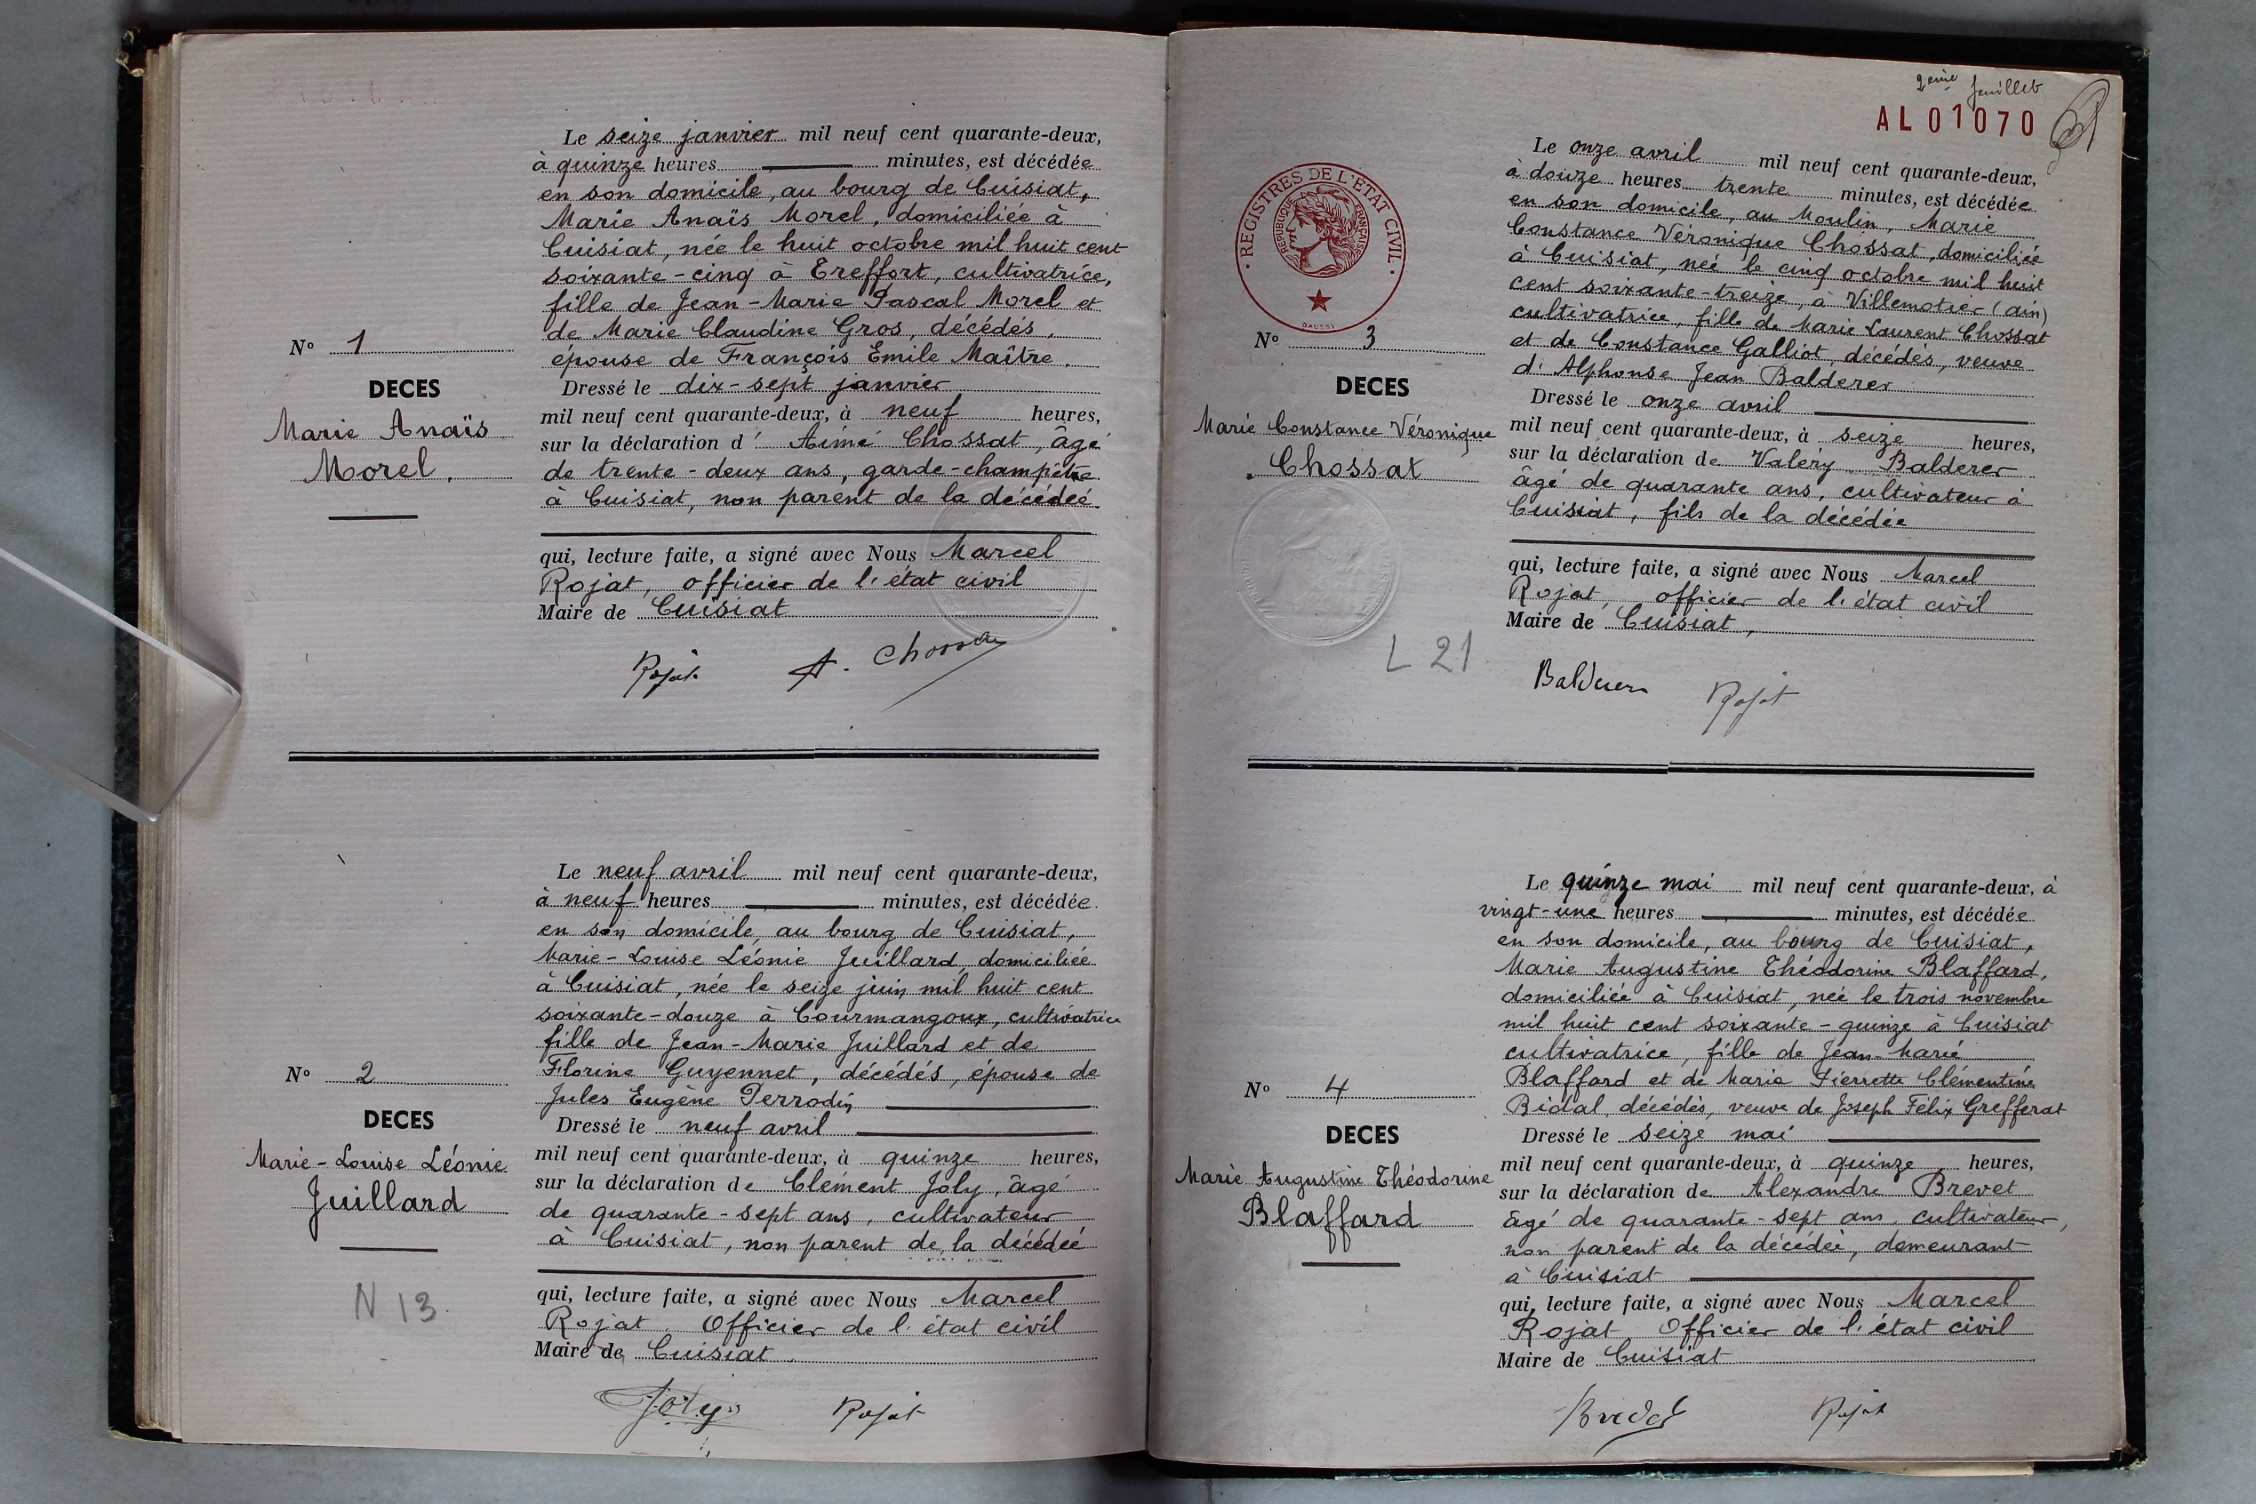 Le seize janvier mil neuf cent quarante-deux,
à quinze heures minutes, est décédée
en son domicile, au bourg de Cuisiat,
Marie Anaïs Morel, domiciliée à
Cuisiat, née le huit octobre mil huit cent
soixante-cinq à Treffort, cultivatrice,
fille de Jean-Marie Pascal Morel et
de Marie Claudine Gros, décédés,
épouse de François Emile Maître.
N° 1
DECES
Marie Anaïs
Morel.
Dressé le dix-sept janvier
mil neuf cent quarante-deux, à neuf heures,
sur la déclaration d' Aimé Chossat, âgé
de trente-deux ans, garde-champêtre
à Cuisiat, non parent de la décédée.
qui, lecture faite, a signé avec Nous Marcel
Rojat, officier de l'état civil
Maire de Cuisiat
Rojat A. Chossat
Le neuf avril mil neuf cent quarante-deux,
à neuf heures minutes, est décédée
en son domicile, au bourg de Cuisiat,
Marie-Louise Léonie Juillard, domiciliée
à Cuisiat, née le seize juin mil huit cent
soixante-douze à Courmangoux, cultivatrice
fille de Jean-Marie Juillard et de
Florine Guyennet, décédés, épouse de
Jules Eugène Perrodin
N° 2
DECES
Marie-Louise Léonie
Juillard
N 13
Dressé le neuf avril
mil neuf cent quarante-deux, à quinze heures,
sur la déclaration de Clément Joly, âgé
de quarante-sept ans, cultivateur
à Cuisiat, non parent de la décédée
qui, lecture faite, a signé avec Nous Marcel
Rojat, Officier de l'état civil
Maire de Cuisiat.
Joly Rojat
2eme feuillet
AL 01070
REGISTRES DE L'ETAT CIVIL
REPUBLIQUE FRANÇAISE
Le onze avril mil neuf cent quarante-deux,
à douze heures trente minutes, est décédée
en son domicile, au Moulin, Marie
Constance Véronique Chossat, domiciliée
à Cuisiat, née le cinq octobre mil huit
cent soixante-treize, à Villemotier (ain)
cultivatrice, fille de Marie Laurent Chossat
et de Constance Galliot, décédés, veuve
d'Alphonse Jean Balderer
N° 3
DECES
Marie Constance Véronique
Chossat
L 21
Dressé le onze avril
mil neuf cent quarante-deux, à seize heures,
sur la déclaration de Valéry Balderer
âgé de quarante ans, cultivateur à
Cuisiat, fils de la décédée
qui, lecture faite, a signé avec Nous Marcel
Rojat, officier de l'état civil
Maire de Cuisiat,
Balderer Rojat
Le quinze mai mil neuf cent quarante-deux, à
vingt-une heures minutes, est décédée
en son domicile, au bourg de Cuisiat,
Marie Augustine Théodorine Blaffard,
domiciliée à Cuisiat, née le trois novembre
mil huit cent soixante-quinze à Cuisiat
cultivatrice, fille de Jean-Marie
Blaffard et de Marie Pierrette Clémentine
Bidal, décédés, veuve de Joseph Félix Grefferat
N° 4
DECES
Marie Augustine Théodorine
Blaffard
Dressé le seize mai
mil neuf cent quarante-deux, à quinze heures,
sur la déclaration de Alexandre Brevet
âgé de quarante-sept ans, cultivateur,
non parent de la décédée, demeurant
à Cuisiat
qui, lecture faite, a signé avec Nous Marcel
Rojat Officier de l'état civil
Maire de Cuisiat
Brevet Rojat